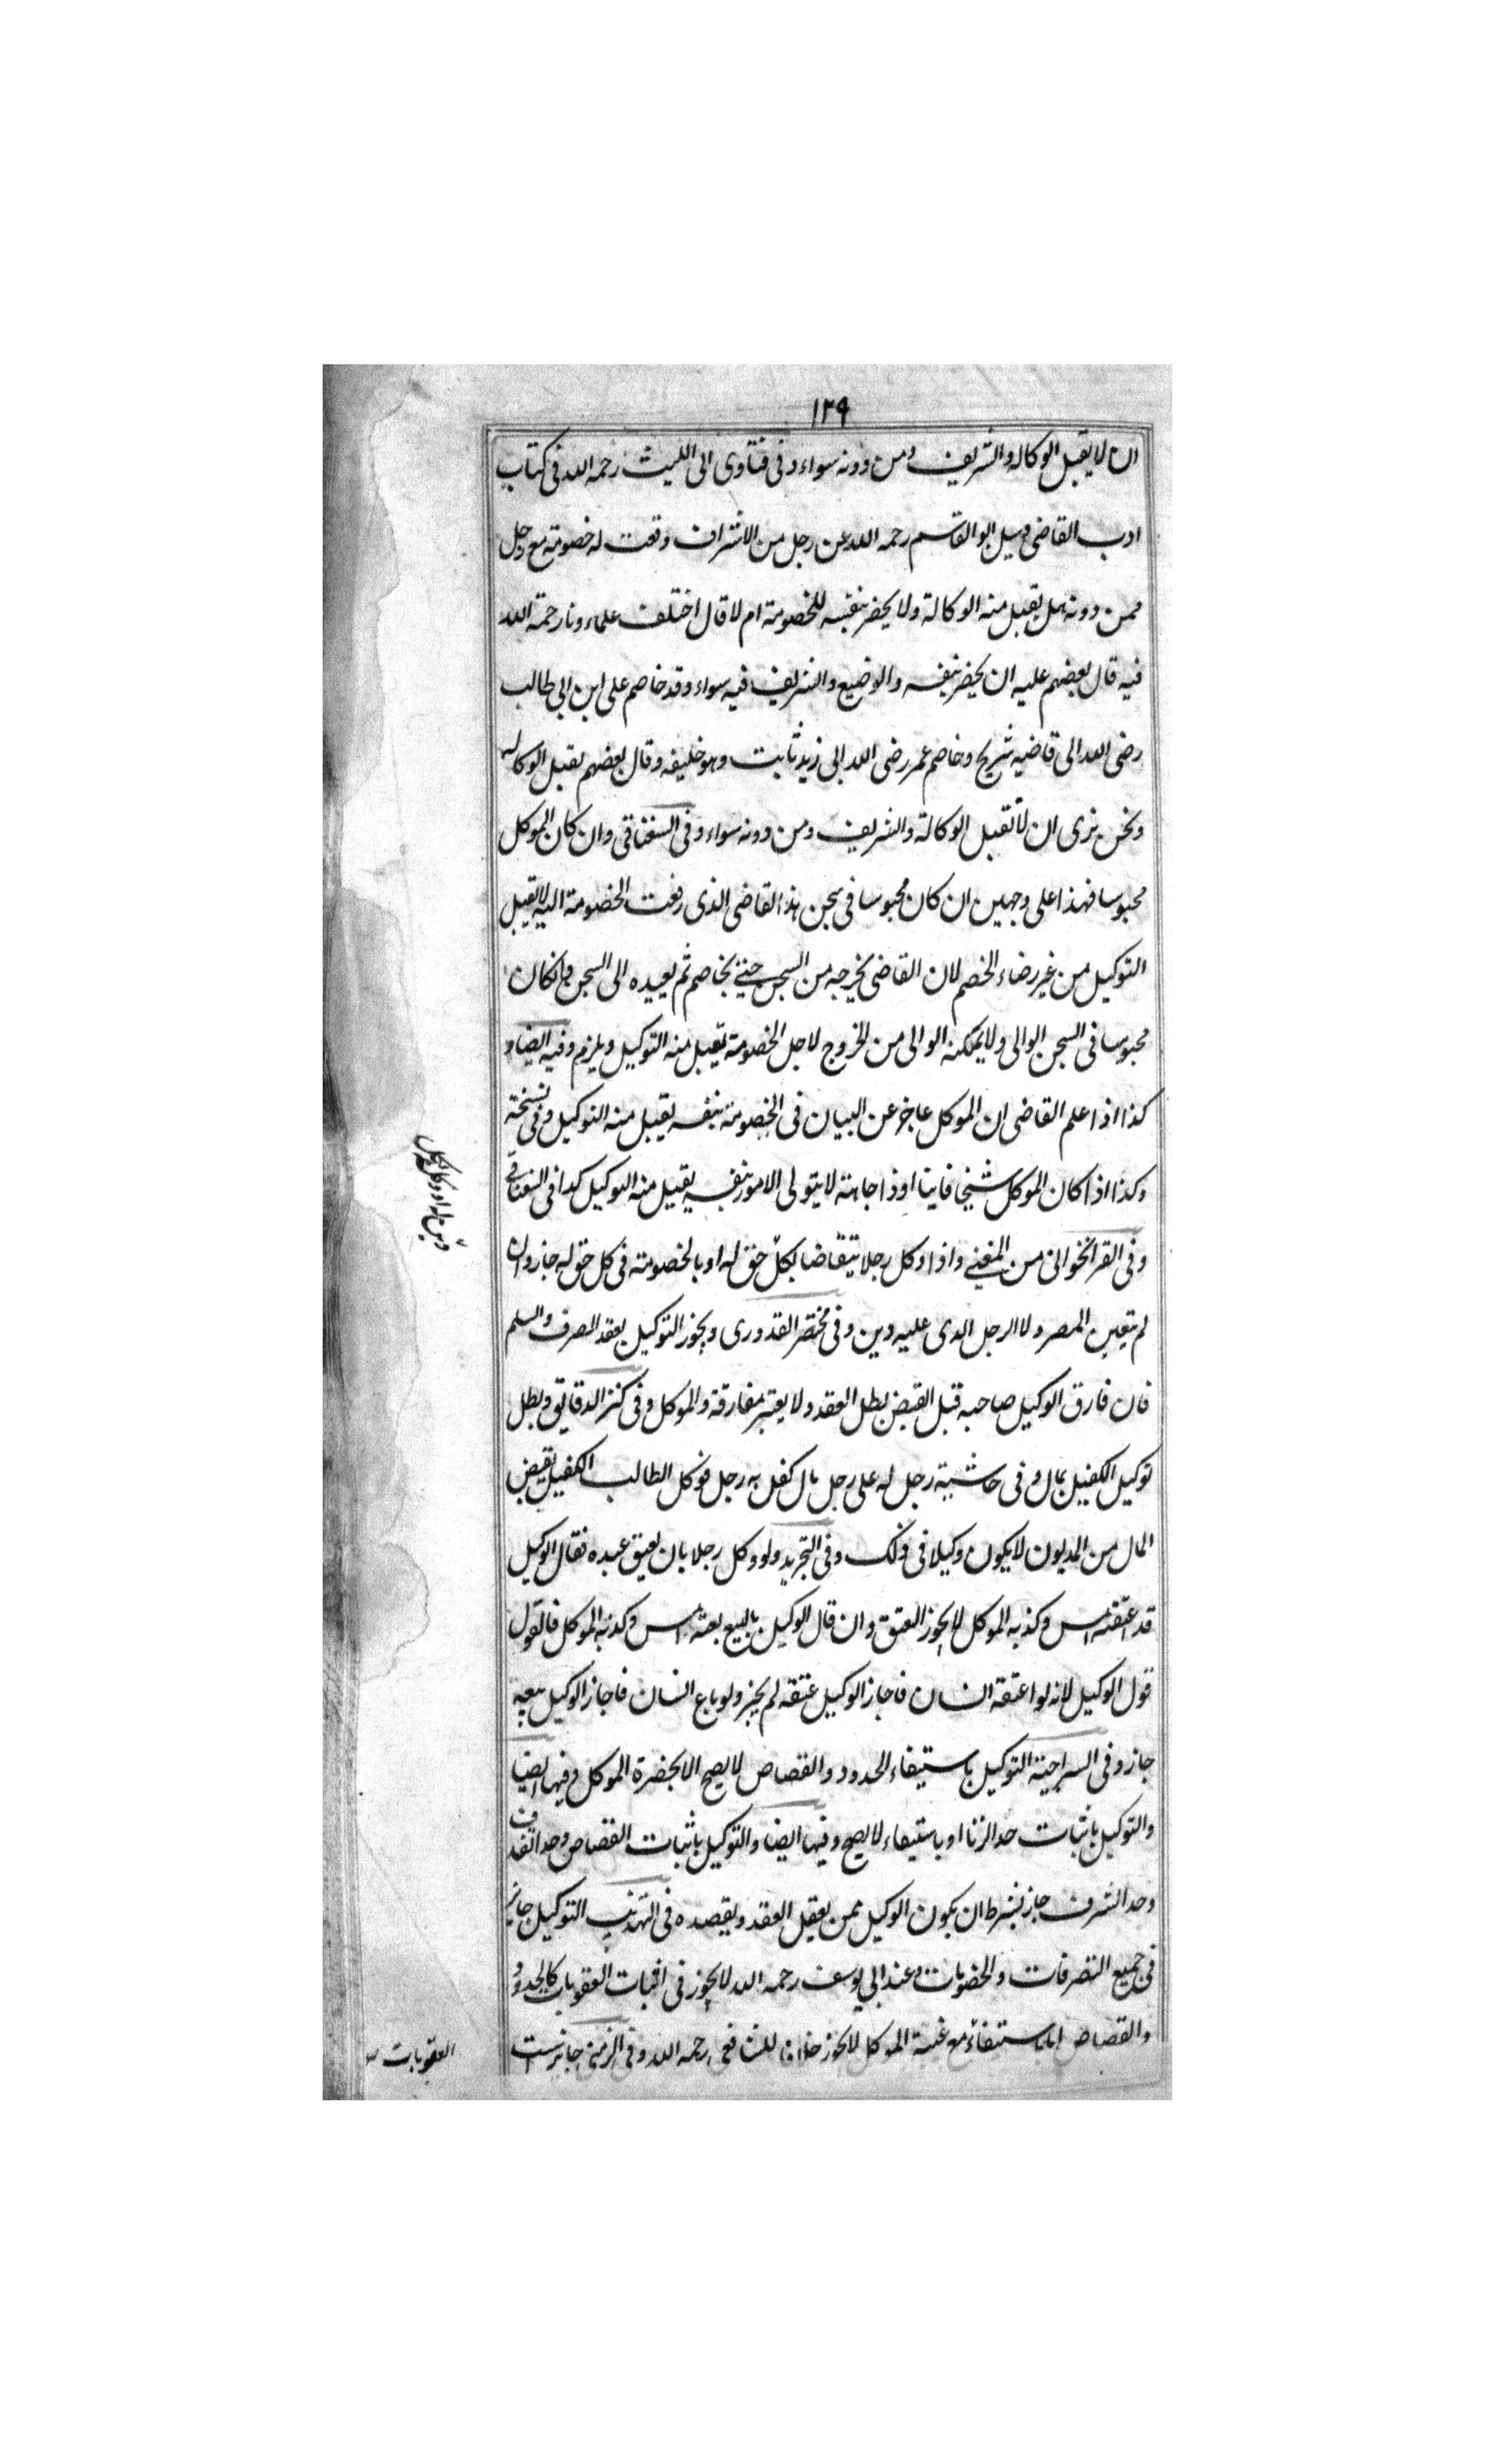 ١٢٩
ان لا يقبل الوكاله والشريف ومن دونه سواء وفى فتاوى ابى الليث رحمه الله فى كتاب
ادب القاضى وسيل ابو القاسم رحمه الله عن رجل من الاشراف وقعت له خصومة مع رجل
ممن دونه هل يقبل منه الوكالة ولا يحضر بنفسه للخصومة ام لا قال اختلف علماءونا رحمة الله
فيه قال بعضهم عليه ان يحضر بنفسه والوضيع والشريف فيه سواء وقد خاصم على ابن ابى طالب
رضى الله الى قاضيه شريح وخاصم عمر رضى الله الى زيد ثابت وهو خليفه وقال بعضهم يقبل الوكاله
ونحن نرى ان لا تقبل الوكالة والشريف ومن دونه سواء وفى السغناقى وان كان الموكل
محبوسا فهذا على وجهين ان كان محبوسا فى سجن هذا القاضى الذى رفعت الخصومة اليه لا يقبل
التوكيل من غير رضاء الخصم لان القاضى يخرجه من السجن حتى يخاصم ثم يعيده الى السجن وانكان
محبوسا فى السجن الوالى ولا يمكنه الوالى من الخروج لاجل الخصومة يقبل منه التوكيل ويلزم وفيه ايضا و
كذا اذا علم القاضى ان الموكل عاجز عن البيان فى الخصومة بنفسه يقبل منه التوكيل وفى نسخة
وكذا اذا كان الموكل شيخا فانيا او ذا جاهة لا يتولى الامور بنفسه يقبل منه التوكيل كذا فى السغناقى
وفى القراخوانى من المغنى واذا وكل رجلا يتقاضا بكل حق له او بالخصومة فى كل حق له جاز وان
لم يتعين المصر ولا الرجل الذى عليه دين وفى مختصر القدورى ويجوز التوكيل بعقد الصرف والسلم
فان فارق الوكيل صاحبه قبل القبض بطل العقد ولا يعتبر مفارقة والموكل وفى كنز الدقايق وبطل
توكيل الكفيل بمال وفى حاشية رجل له على رجل مال كفل به رجل فوكل الطالب الكفيل بقبض
المال من المديون لا يكون وكيلا فى ذلك وفى التجريد ولو وكل رجلا بان يعتق عبده فقال الوكيل
قد اعتقته امس وكذبه الموكل لا يجوز العتق وان قال الوكيل بالبيع بعته امس وكذبه الموكل فالقول
قول الوكيل لانه لو اعتقه انسان فاجاز الوكيل عتقه لم يجز ولو باع انسان فاجاز الوكيل بيعه
جاز وفى السراجية التوكيل باستيفاء الحدود والقصاص لا يصح الا بحضرة الموكل وفيها ايضا
والتوكيل باثبات حد الزنا او باستيفاء لا يصح وفيها ايضا والتوكيل باثبات القصاص وحد القذف
وحد السرف جاز بشرط ان يكون الوكيل ممن يعقل العقد ويقصده فى التهذيب التوكيل جايز
فى جميع التصرفات والخصومات وعند ابى يوسف رحمه الله لا يجوز فى اثبات العقوبات كالحدود
والقصاص اما باستيفاء مع غيبة الموكل لا يجوز خلافا للشافعى رحمه الله وفى
العقوبات